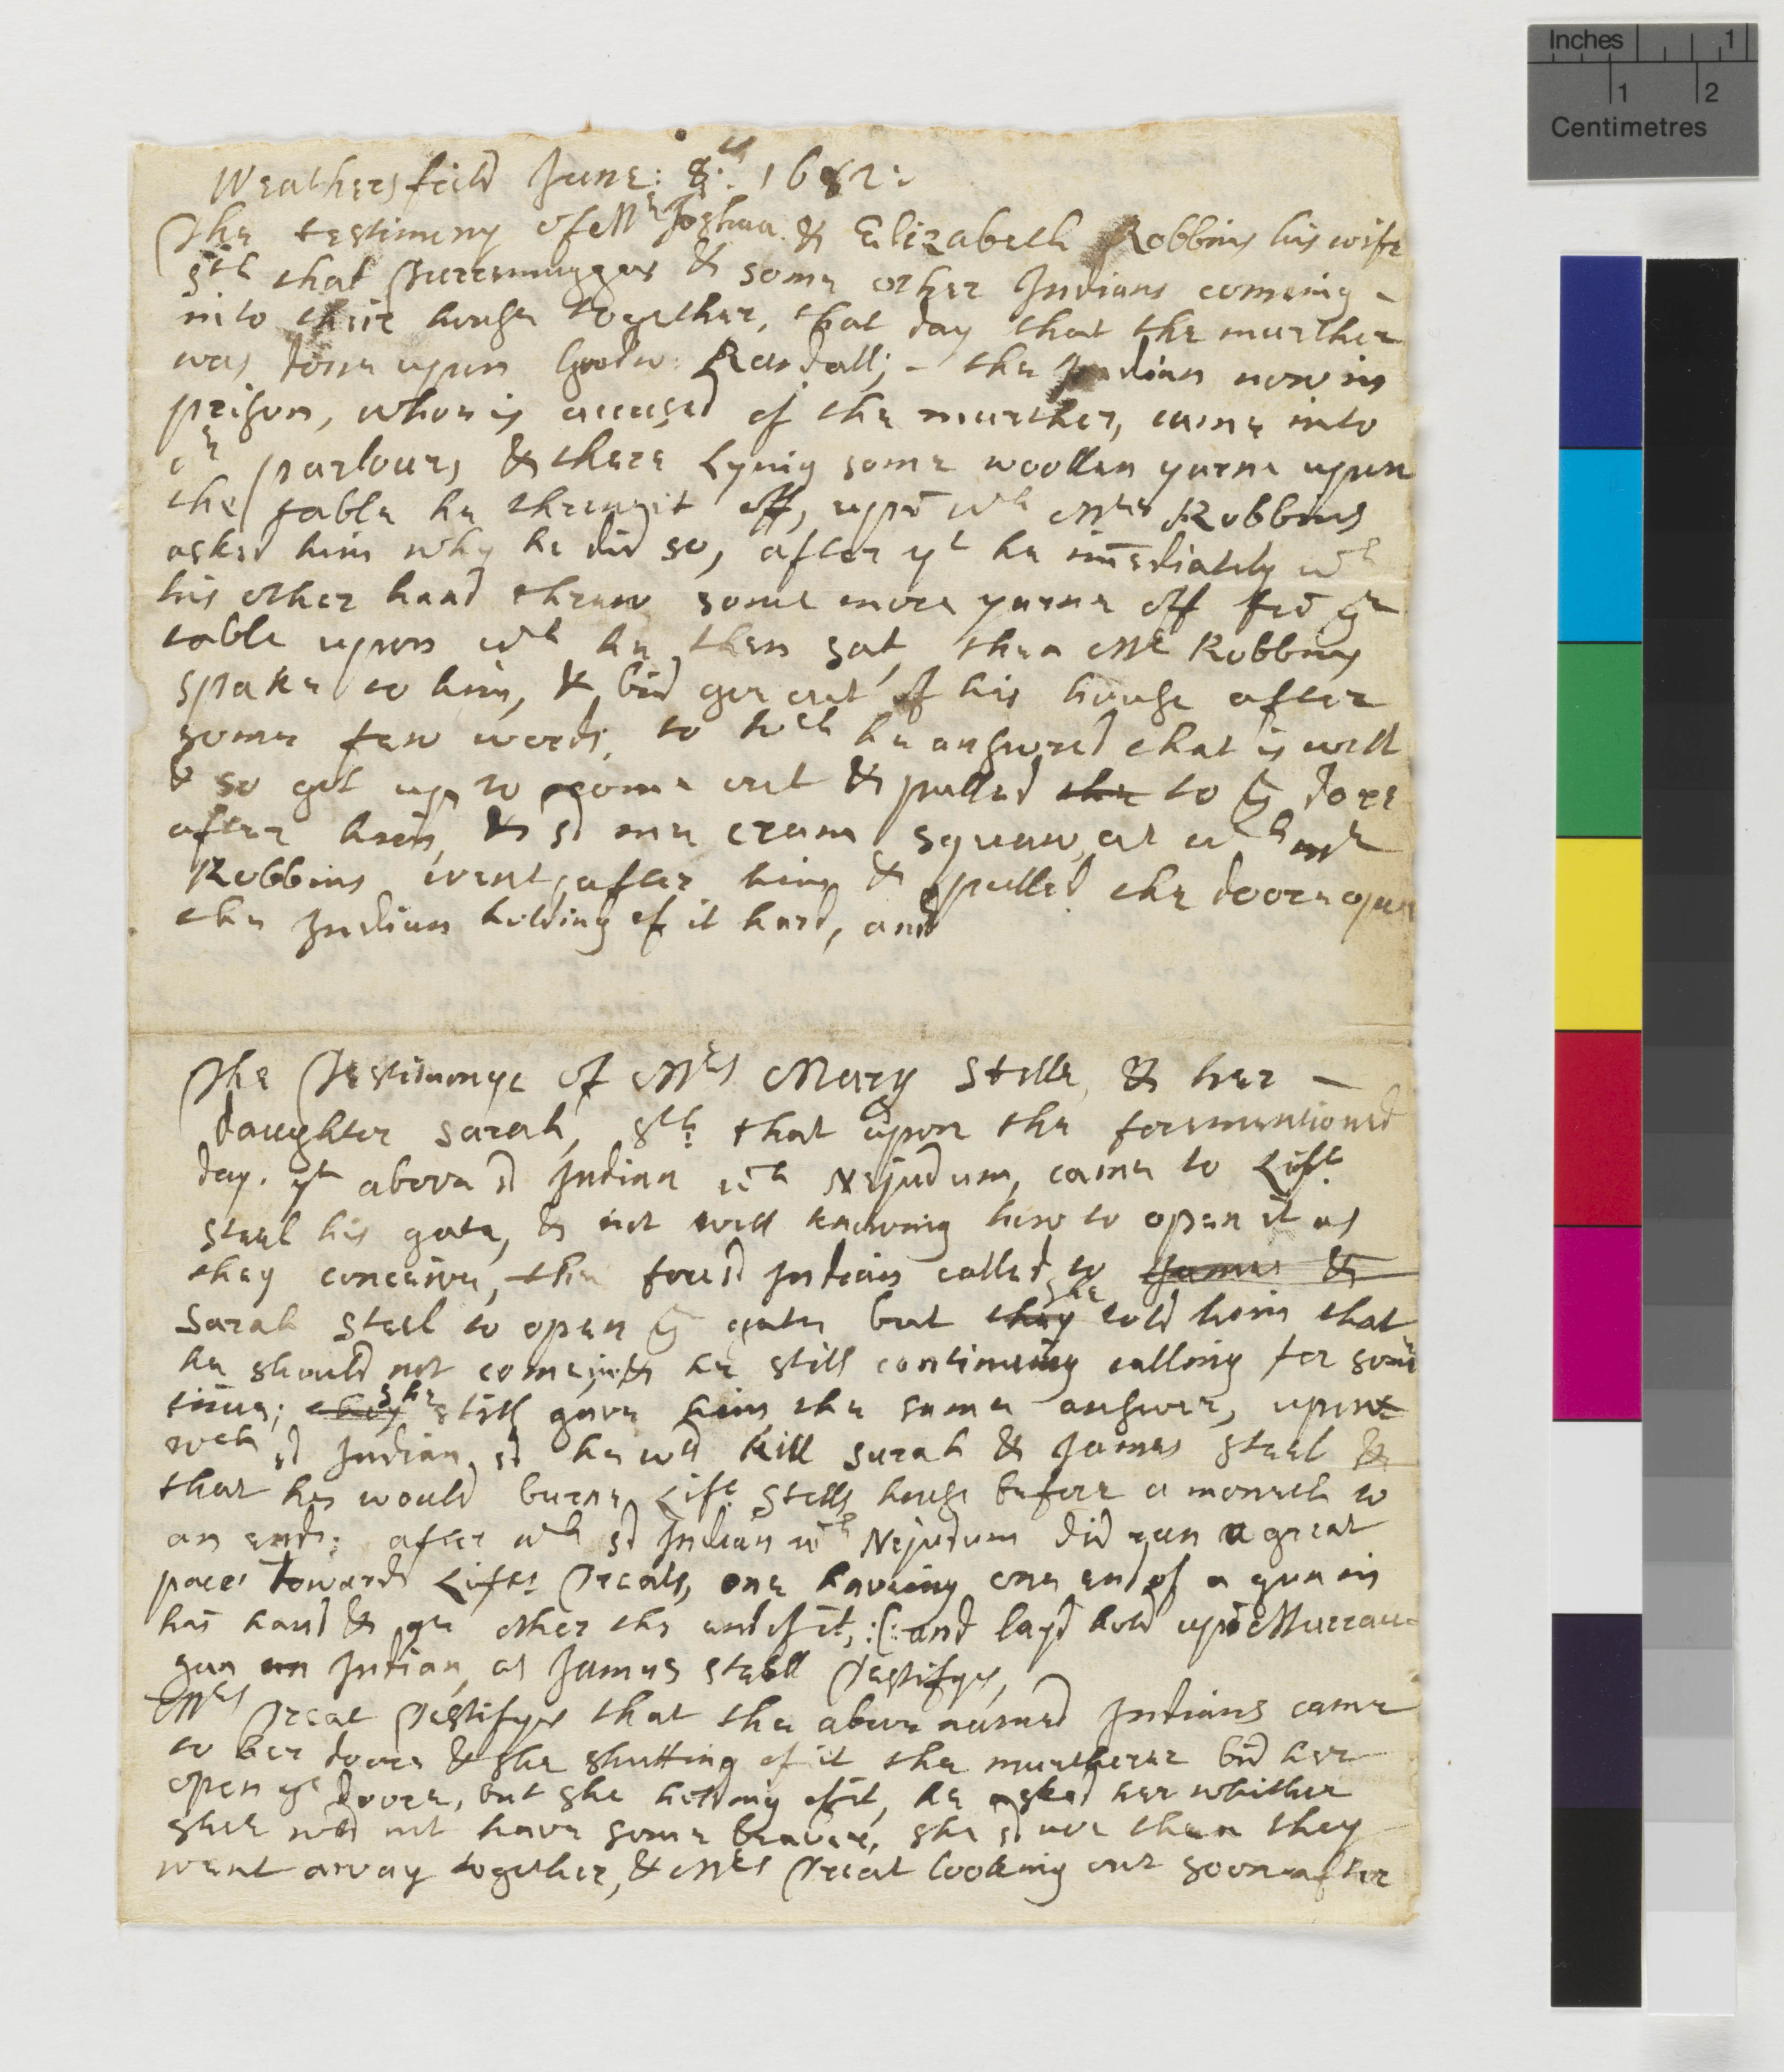 Weathersfeild June: 8:th 1682:
The testimeny of Mr Joshua & Elizabeth Robbins his wife
sth that & some other Indians comeing -
into their house together, that day that the murther
was done upon Goodw: Randall; - the Indian now in
prison, whoe is accused of the murther, came into
or parlour, & there Lying some woollen yarne upon
the table he threw it off, upō wch Mrs Robbins
asked him why he did so, after yt he im̄ediately wth
his other hand threw some more yarne off frō ye
table upon wch he then sat, then Mr Robbins
spake to him, & bid goe out of his house after
some few words, to wch he answred that is well
& so got up to come out & pulled the to ye dore
after him, & sd me cram squaw, at wch
Robbins went after him & pulled the doore open
the Indian holding of it hard, and
The Testimonye of Mrs Mary Stelle, & her -
daughter Sarah, sth: that upon the forementioned
day. ye above sd Indian wth Nejudum, came to Lift
Steel his gate, & not well knowing how to open it as
they conceive, the foresd Indian called to James &
Sarah Steel to open ye gate but they she told him that
he should not come in, & he still continuing calling for some
time; they she still gave him the same answer, upon
wch sd Indian sd he wd kill Sarah & James Steel &
that he would burne Lift Stells house before a moneth to
an end; after wch sd Indian wth Nejudum did run a great
pace towards Lift: Treats, one haveing one end of a gun in
his hand & ye other the end of it, :(: and layd hold upō Marrau-
gan an Indian, as James Steell Testifyes,
Mrs Treat Testifyes that the above named Indians came
to her doore & she shutting of it the murtherer bid her
open ye doore, but she holding of it, he asked her whither
shee wod not have some beavere, she sd noe then they
went away together, & Mrs Treat looking out soone after
Inches 1
1 2
Centimetres